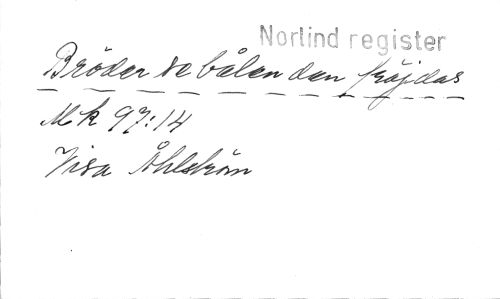 Norlind register
Bröder se bålen den fröjdas
Mk 97:14
Visa Åhlström